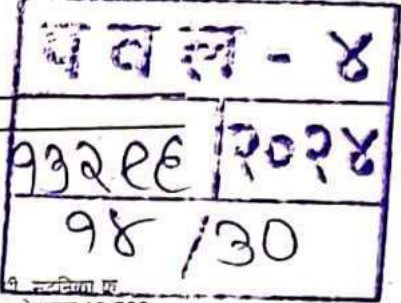 पवल - ४
१३२९६ २०२४
१४ /३०